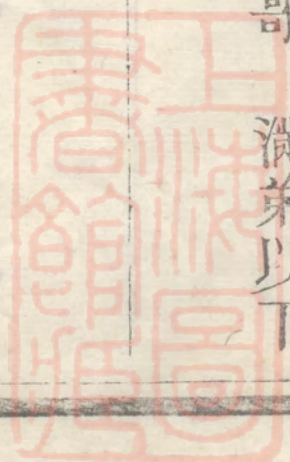 弟以下
上海圖
書館藏